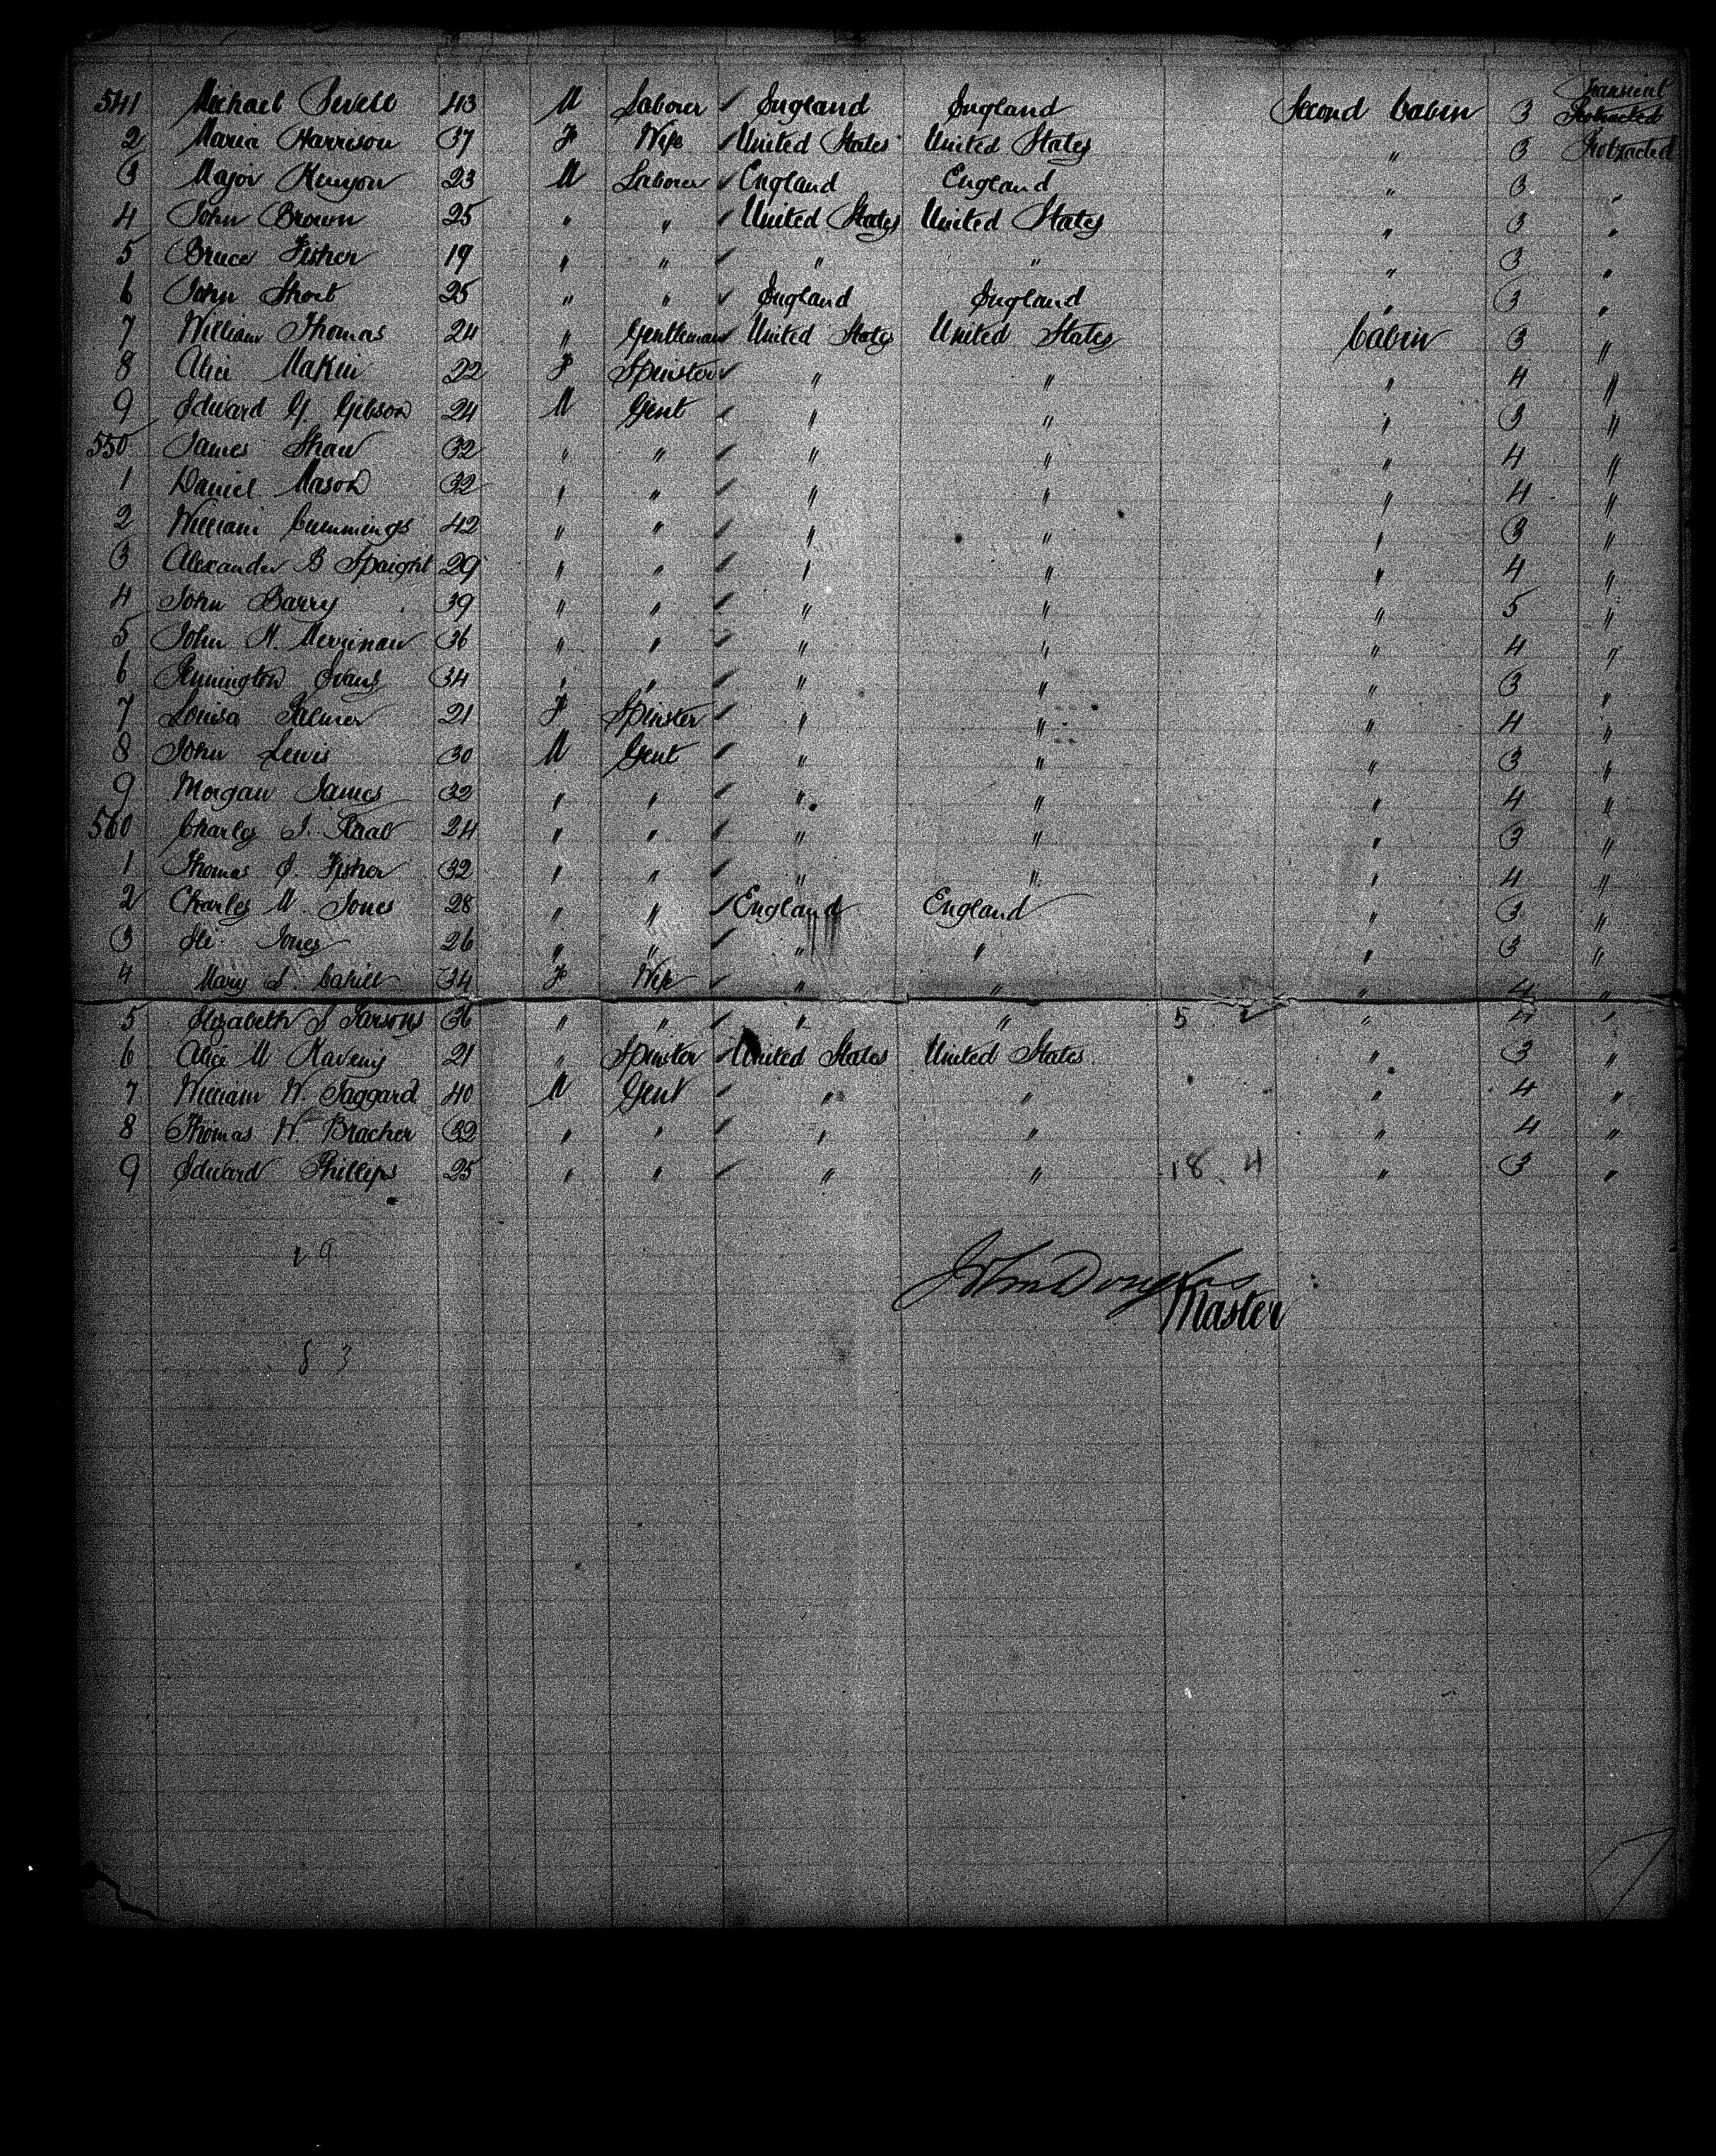 Transient
541 Michael Sewell 43 M Laborer ✓ England England Second Cabin 3 Protracted
2 Maria Harrison 37 F Wife ✓ United States United States " 3 Protracted
3 Major Kenyon 23 M Laborer ✓ England England " 3 "
4 John Brown 25 " " ✓ United States United States " 3 "
5 Bruce Fisher 19 " " ✓ " " " 3 "
6 John Short 25 " " ✓ England England " 3 "
7 William Thomas 24 " Gentleman ✓ United States United States Cabin 3 "
8 Alice Makin 22 F Spinster ✓ " " " 4 "
9 Edward G. Gibson 24 M Gent ✓ " " " 3 "
550 James Shaw 32 " " ✓ " " " 4 "
1 Daniel Mason 32 " " ✓ " " " 4 "
2 William Cummings 42 " " ✓ " " " 3 "
3 Alexander B Spaight 29 " " ✓ " " " 4 "
4 John Barry 39 " " ✓ " " " 5 "
5 John H. Merrinan 36 " " ✓ " " " 4 "
6 Pennington Evans 34 " " ✓ " " " 3 "
7 Louisa Palmer 21 F Spinster ✓ " " " 4 "
8 John Lewis 30 M Gent ✓ " " " 3 "
9 Morgan James 32 " " ✓ " " " 4 "
560 Charles J. 24 " " ✓ " " " 3 "
1 Thomas J. Fisher 32 " " ✓ " " " 4 "
2 Charles M. Jones 28 " " ✓ England England " 3 "
3 Jones 26 " " ✓ " " " 3 "
4 Mary S. Cahill 34 F Wife ✓ " " " 4 "
5 Elizabeth S Parsons 36 " " ✓ " " 5 2 " 4 "
6 Alice M 21 " Spinster ✓ United States United States. " 3 "
7 William W. Taggard 40 M Gent ✓ " " " 4 "
8 Thomas W. Bracher 32 " " ✓ " " " 4 "
9 Edward Phillips 25 " " ✓ " " 18 4 " 3 "
John Douglas
Master